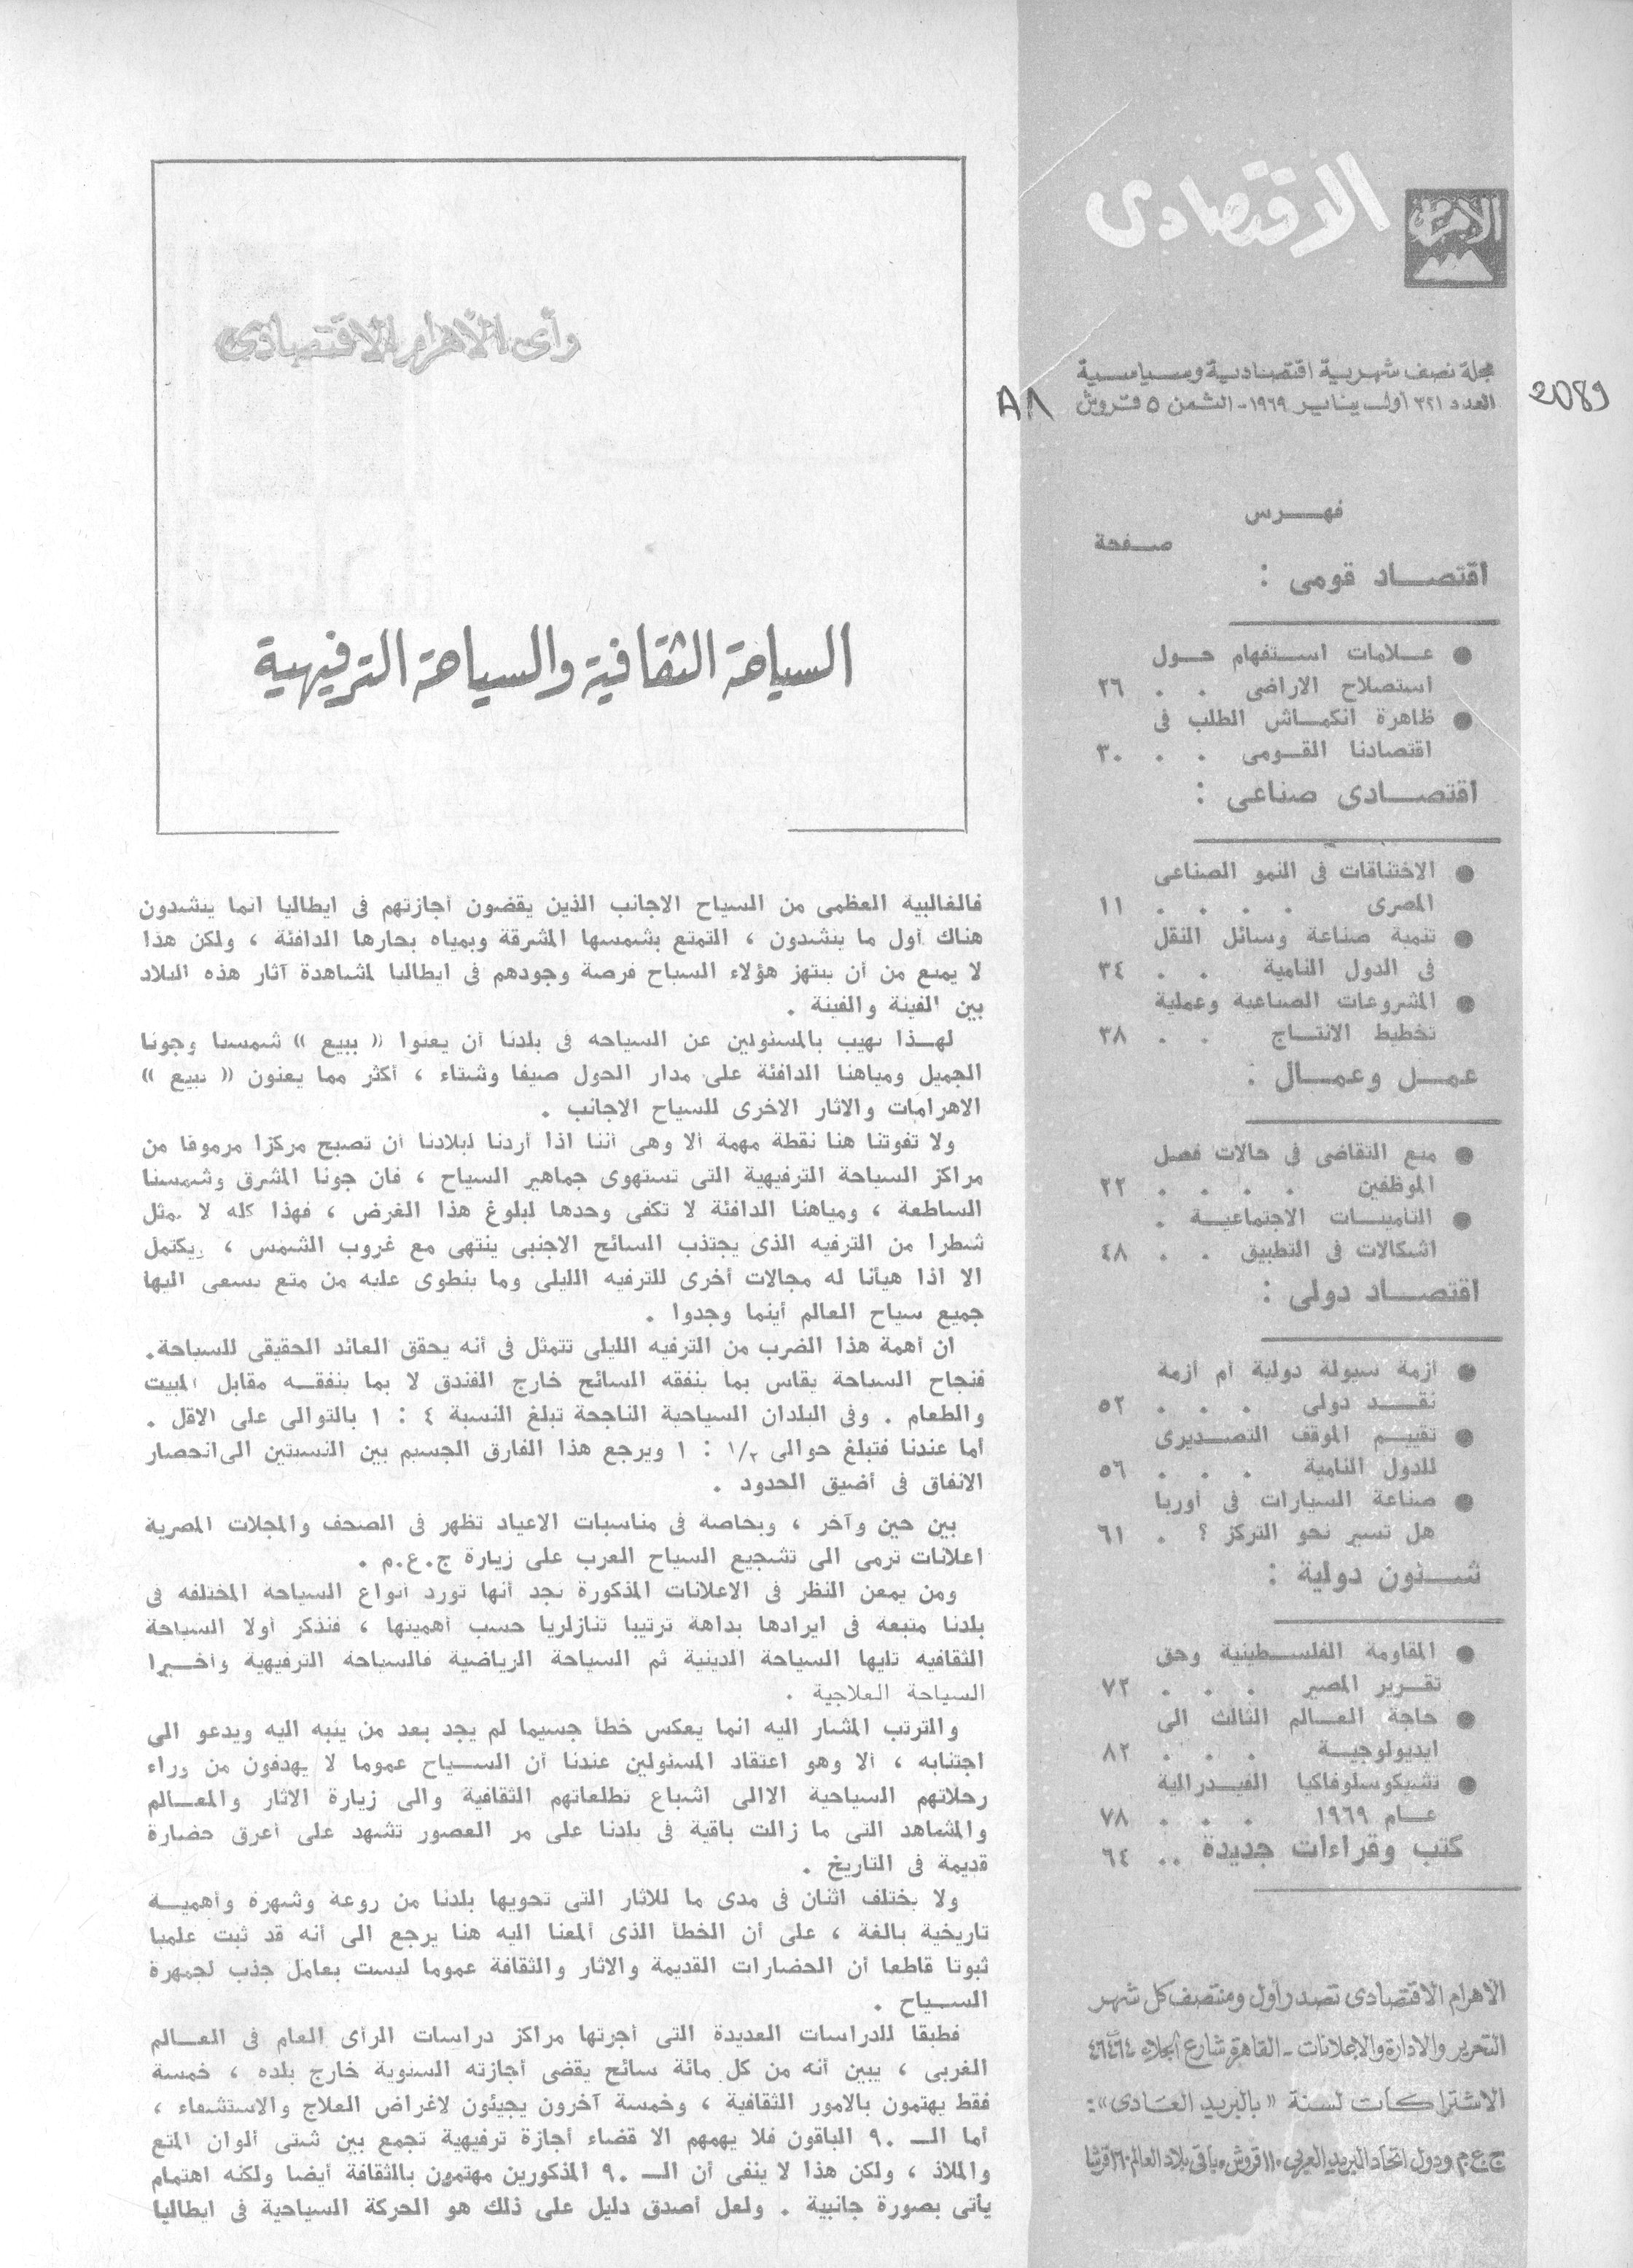 الاهرام
الاقتصادى
مجلة نصف شهرية اقتصادية وسياسية
العدد ٣٢١ أول يناير ١٩٦٩ - الثمن ٥ قروش
2089
A ٨
فهـــرس
صـفحة
اقتصـــاد قومى :
● عــلامات استفهام حـول
استصلاح الاراضى . . ٢٦
● ظاهرة انكمــاش الطلب فى
اقتصادنا القــومى . . ٣٠
اقتصــادى صناعى :
● الاختناقات فى النمو الصناعى
المصرى . . . . ١١
● تنمية صناعة وسائل النقل
فى الدول النامية . . ٣٤
● المشروعات الصناعية وعملية
تخطيط الانتــاج . . ٣٨
عمــل وعمــال :
● منع التقاضى فى حالات فصل
الموظفين . . . . ٢٢
● التأمينــات الاجتماعيــة .
اشكالات فى التطبيق . . ٤٨
اقتصــاد دولى :
● أزمة سيولة دولية أم أزمة
نقــــد دولى . . . ٥٢
● تقييــم الموقف التصــديرى
للدول النامية . . . ٥٦
● صناعة السيارات فى أوربا
هل تسير نحو التركز ؟ . ٦١
شــــئون دولية :
● المقاومة الفلســطينية وحق
تقــرير المصير . . . ٧٢
● حاجة العــالم الثالث الى
ايديولوجيــة . . . ٨٢
● تشيكوسلوفاكيا الفيــدرالية
عــام ١٩٦٩ . . . ٧٨
كتب وقراءات جديدة . . ٦٤
الأهرام الاقتصادى تصدر أول ومنتصف كل شهر
التحرير والادارة والاعلانات - القاهرة شارع الجلاء ت ٤٦٤٦٤
الاشتراكات لسنة « بالبريد العادى » :
ج.ع.م ودول اتحاد البريد العربى ١١٠ قروش - باقى بلاد العالم ١٦٠ قرشا
رأى الأهرام الاقتصادى
السياحة الثقافية والسياحة الترفيهية
فالغالبية العظمى من السياح الاجانب الذين يقضون أجازتهم فى ايطاليا انما ينشدون
هناك أول ما ينشدون ، التمتع بشمسها المشرقة وبمياه بحارها الدافئة ، ولكن هذا
لا يمنع من أن ينتهز هؤلاء السياح فرصة وجودهم فى ايطاليا لمشاهدة آثار هذه البلاد
بين الفينة والفينة .
لهــذا نهيب بالمسئولين عن السياحه فى بلدنا أن يعنوا « ببيع » شمسنا وجونا
الجميل ومياهنا الدافئة على مدار الحول صيفا وشتاء ، أكثر مما يعنون « ببيع »
الاهرامات والاثار الاخرى للسياح الاجانب .
ولا تفوتنا هنا نقطة مهمة ألا وهى أننا اذا أردنا لبلادنا أن تصبح مركزا مرموقا من
مراكز السياحة الترفيهية التى تستهوى جماهير السياح ، فان جونا المشرق وشمسنا
الساطعة ، ومياهنا الدافئة لا تكفى وحدها لبلوغ هذا الغرض ، فهذا كله لا يمثل
شطرا من الترفيه الذى يجتذب السائح الاجنبى ينتهى مع غروب الشمس ، يكتمل
الا اذا هيأنا له مجالات أخرى للترفيه الليلى وما ينطوى عليه من متع يسعى اليها
جميع سياح العالم أينما وجدوا .
ان أهمة هذا الضرب من الترفيه الليلى تتمثل فى أنه يحقق العائد الحقيقى للسياحة.
فنجاح السياحة يقاس بما ينفقه السائح خارج الفندق لا بما ينفقــه مقابل المبيت
والطعام . وفى البلدان السياحية الناجحة تبلغ النسبة ٤ : ١ بالتوالى على الاقل .
أما عندنا فتبلغ حوالى ١/٢ : ١ ويرجع هذا الفارق الجسيم بين النسبتين الى انحصار
الانفاق فى أضيق الحدود .
بين حين وآخر ، وبخاصة فى مناسبات الاعياد تظهر فى الصحف والمجلات المصرية
اعلانات ترمى الى تشجيع السياح العرب على زيارة ج.ع.م .
ومن يمعن النظر فى الاعلانات المذكورة يجد أنها تورد أنواع السياحة المختلفه فى
بلدنا متبعه فى ايرادها بداهة ترتيبا تنازلريا حسب أهميتها ، فتذكر أولا السياحة
الثقافيه تليها السياحة الدينية ثم السياحة الرياضية فالسياحة الترفيهية وأخــيرا
السياحة العلاجية .
والترتب المشار اليه انما يعكس خطأ جسيما لم يجد بعد من ينبه اليه ويدعو الى
اجتنابه ، ألا وهو اعتقاد المسئولين عندنا أن الســياح عموما لا يهدفون من وراء
رحلاتهم السياحية الاالى اشباع تطلعاتهم الثقافية والى زيارة الاثار والمعــالم
والمشاهد التى ما زالت باقية فى بلدنا على مر العصور تشهد على أعرق حضارة
قديمة فى التاريخ .
ولا يختلف اثنان فى مدى ما للاثار التى تحويها بلدنا من روعة وشهرة وأهميــة
تاريخية بالغة ، على أن الخطأ الذى ألمعنا اليه هنا يرجع الى أنه قد ثبت علميا
ثبوتا قاطعا أن الحضارات القديمة والاثار والثقافة عموما ليست بعامل جذب لجمهرة
الســياح .
فطبقا للدراسات العديدة التى أجرتها مراكز دراسات الرأى العام فى العــالم
الغربى ، يبين أنه من كل مائة سائح يقضى أجازته السنوية خارج بلده ، خمسة
فقط يهتمون بالامور الثقافية ، وخمسة آخرون يجيئون لاغراض العلاج والاستشفاء ،
أما الــ ٩٠ الباقون فلا يهمهم الا قضاء أجازة ترفيهية تجمع بين شتى ألوان المتع
والملاذ ، ولكن هذا لا ينفى أن الــ ٩٠ المذكورين مهتمون بالثقافة أيضا ولكنه اهتمام
يأتى بصورة جانبية . ولعل أصدق دليل على ذلك هو الحركة السياحية فى ايطاليا